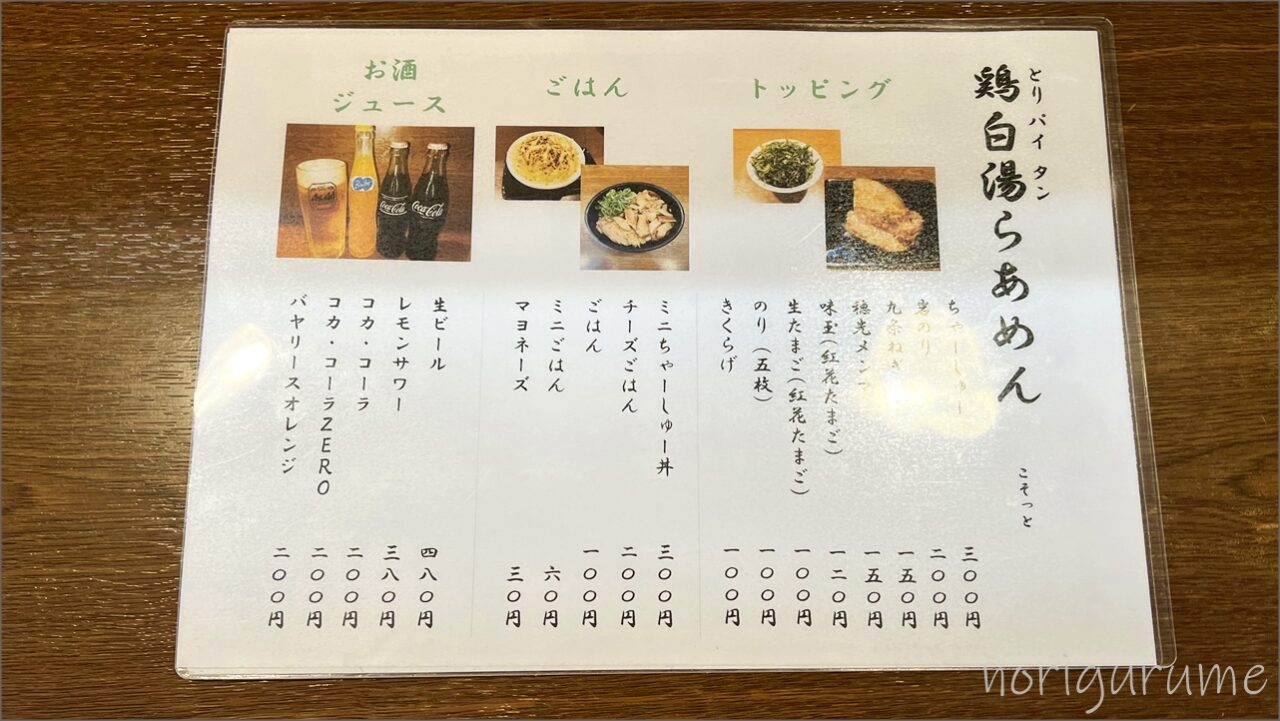 とりパイタン
鶏白湯らあめん
こそっと
トッピング
ちゃーしゅー 三〇〇円
岩のり 二〇〇円
九条ねぎ 一五〇円
穂先メンマ 一五〇円
味玉(紅花たまご) 一二〇円
生たまご(紅花たまご) 一〇〇円
のり(五枚) 一〇〇円
きくらげ 一〇〇円
ごはん
ミニちゃーしゅー丼 三〇〇円
チーズごはん 二〇〇円
ごはん 一〇〇円
ミニごはん 六〇円
マヨネーズ 三〇円
お酒
ジュース
Coca-Cola
Coca-Cola
生ビール 四八〇円
レモンサワー 三八〇円
コカ・コーラ 二〇〇円
コカ・コーラZERO 二〇〇円
バヤリースオレンジ 二〇〇円
norigurume